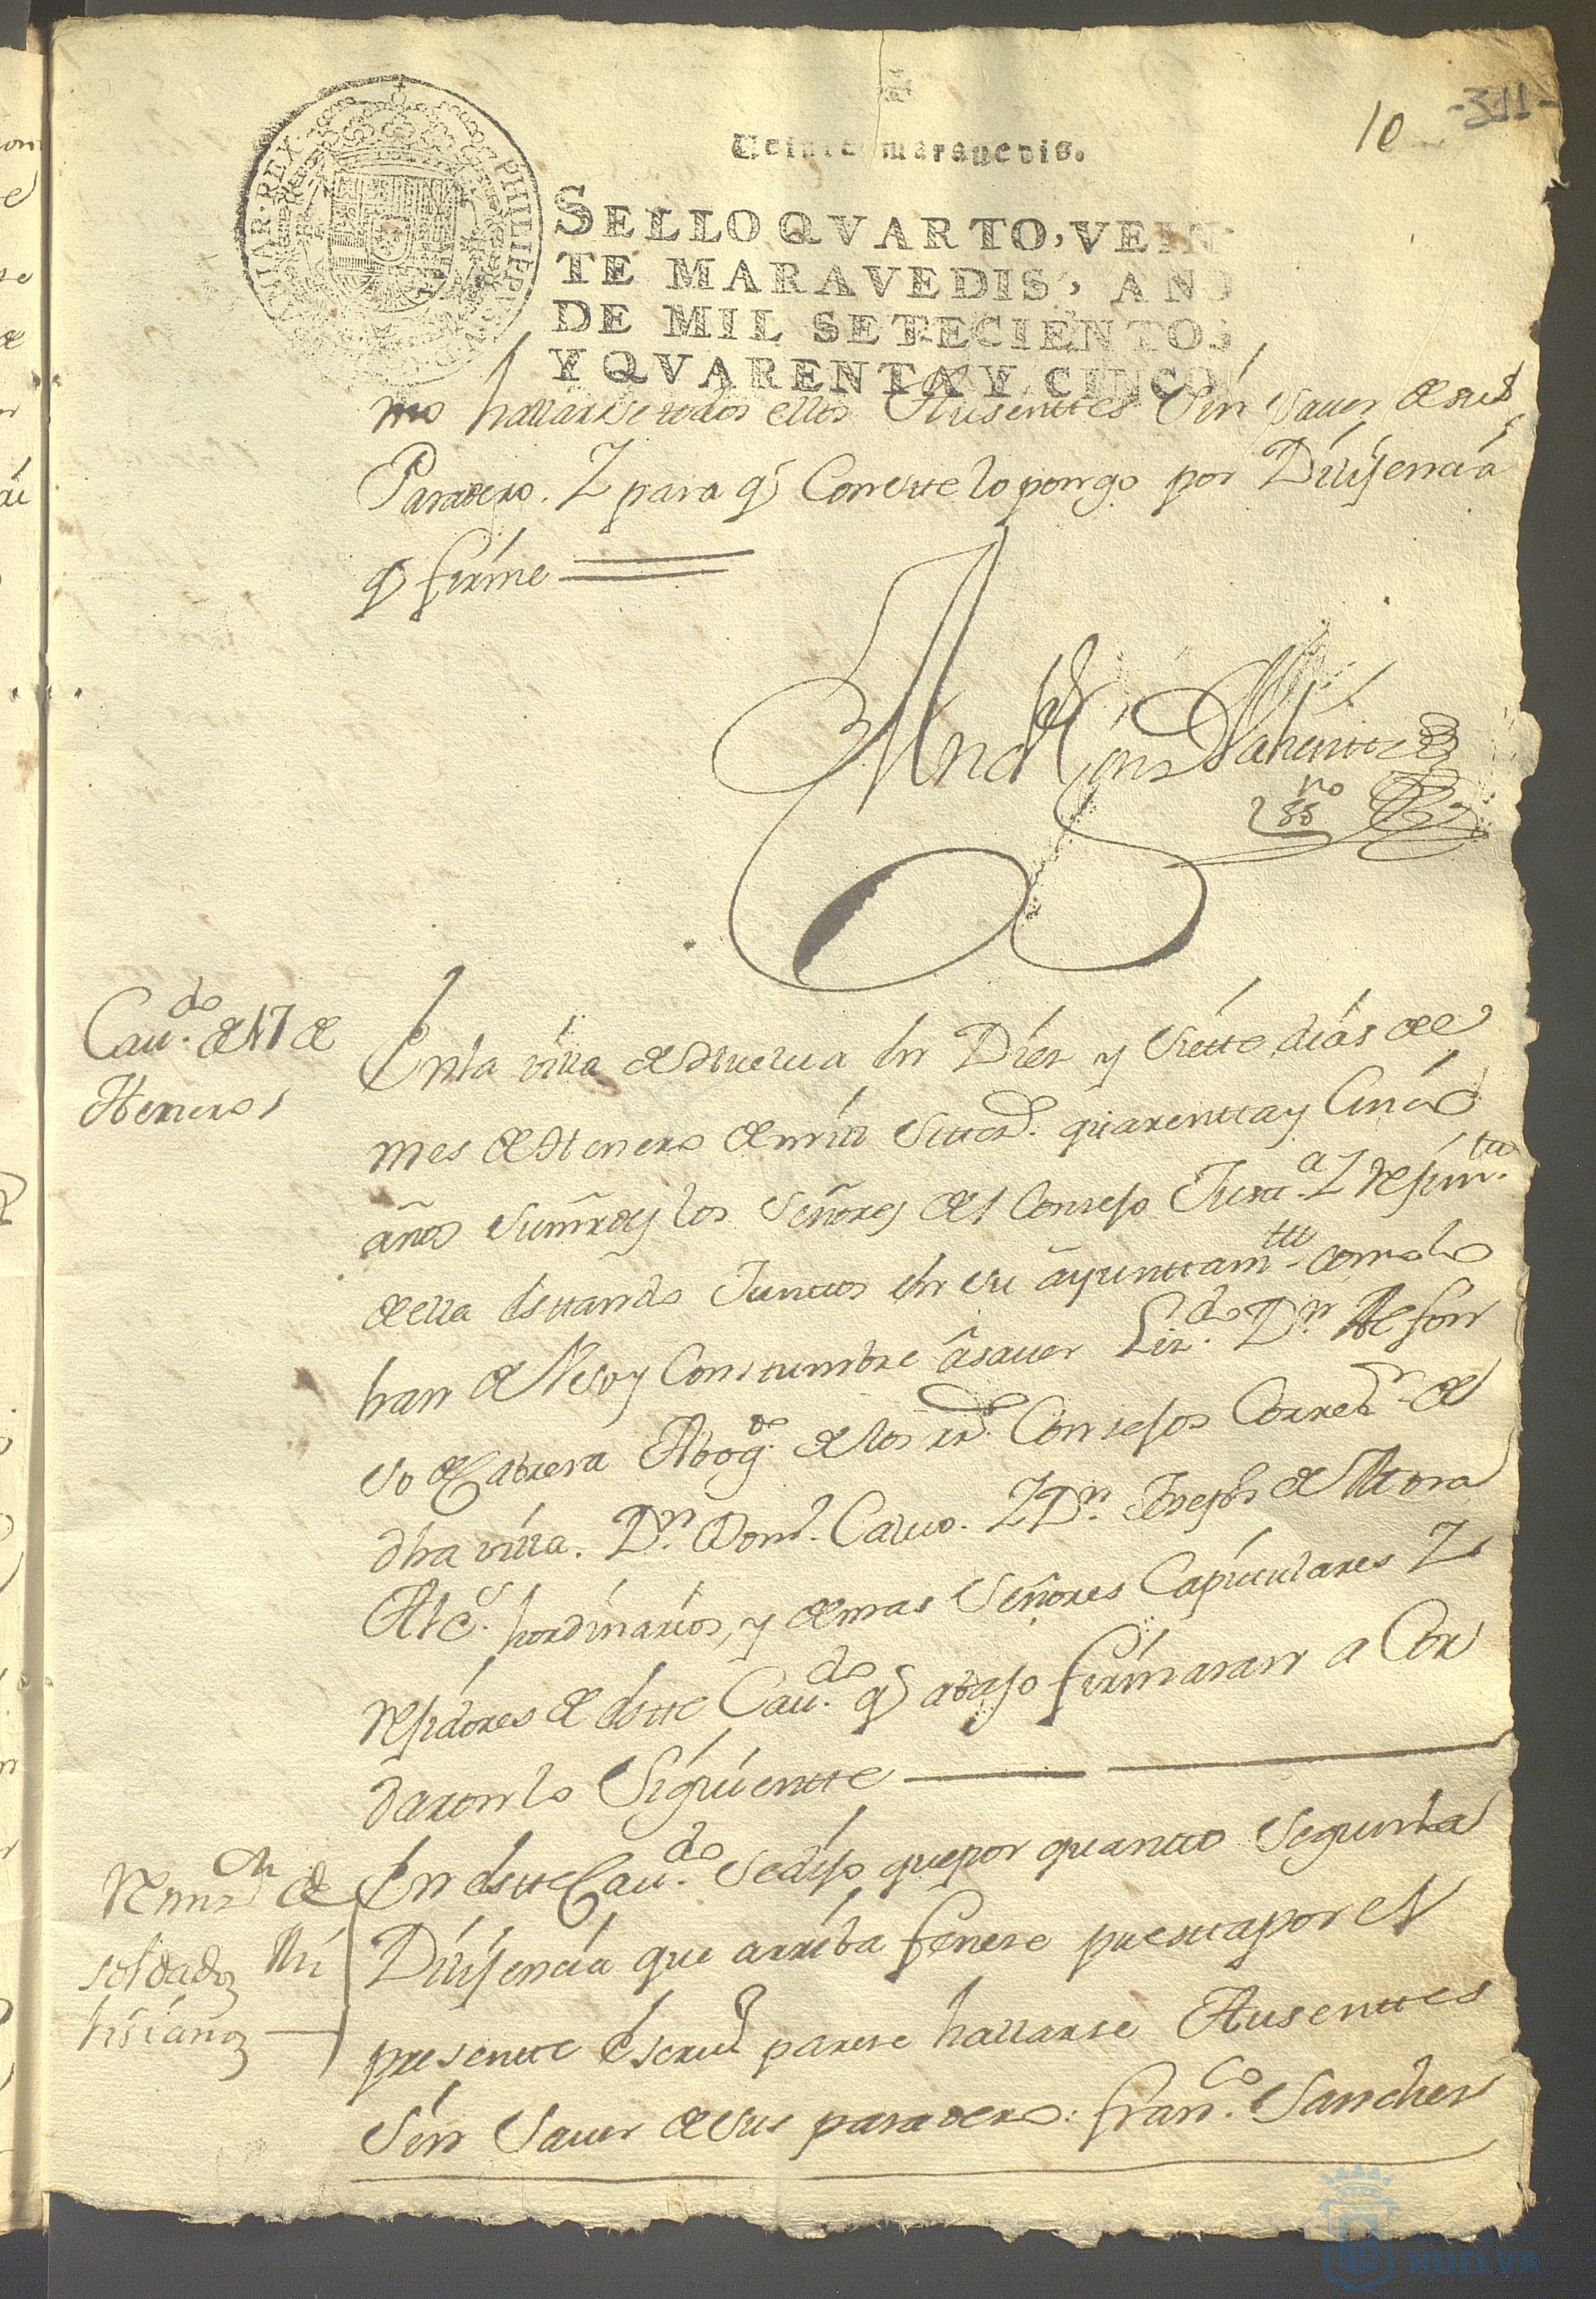 10 -311-
Veinte maravedis.
SELLO QVARTO, VEIN-
TE MARAVEDIS, AÑO
DE MIL SETECIENTOS
Y QVARENTA Y CINCO
PHILIPPVS
HISPANIAR·REX
mo hallarse todos ellos Ausenttes Sin Saver de sus
Paradero. Y para q̃ Constte lo pongo por Dilijencia
q̃ firme
Valientte
ssno
Cau.do de 17 de
Henero
En la villa de Huelua En Diez y Siette dias de
mes de Henero de mill settos. quarentta y Cinco
años sumrds los Señores del Consejo Justa. Y rejimto
de ella Esttando Juntos En su ayunttamtto como lo
han de Uso y Constumbre âsauer Liz.do Dn. Alfon
so de Cabrera Abogdo de los rs. Consejos Correxr. de
dha villa. Dn. Domo. Caluo. Y Dn. Joseph de Mora
Alces. hordinarios, y demas Señores Capitulares Y
rejidores de Estte Cau.do q̃ abajo firmaran a Cor
daron lo Siguientte
Nomzn de
soldados Mi
lisianos
En Estte Cau.do Se dijo que por quantto Segun la
Dilijencia que arriba fenese puesta por el
presentte Escriuo parese hallarse Ausenttes
Sin Sauer de sus paradero: Franco. Sanchez
HUELVA